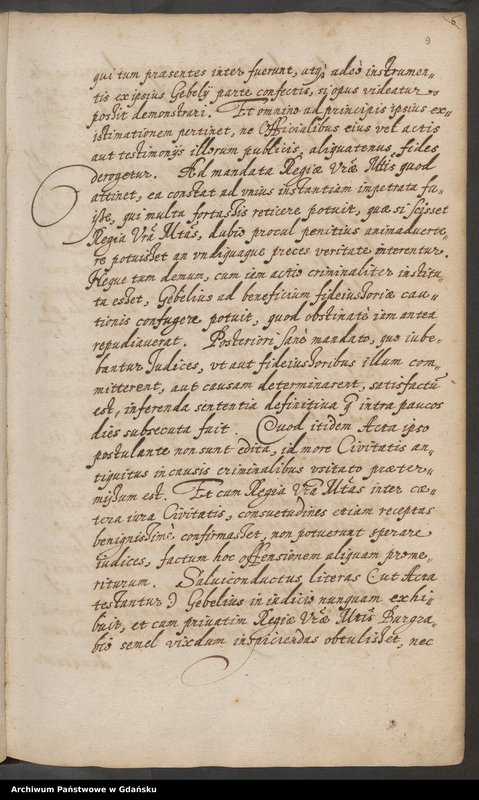 6
9
qui tum præsentes inter fuerunt, atq́ adeò instrumen⸗
tis ex ipsius Gebelij parte confectis, si opus videatur
possit demonstrari. Et omnino ad principis ipsius ex⸗
istimationem pertinet, ne Officialibus eius vel actis
aut testimonijs illorum publicis, aliquatenus fides
derogetur. Ad mandata Regiæ Vræ Mtis quod
attinet, ea constat ad vnius instantiam impetrata fu⸗
isse, qui multa fortassis reticere potuit, quæ si scisset
Regia Vra Mtas, dubio procul penitius animaduerte⸗
re potuisset an vndiquaque preces veritate niterentur.
Neque tum demum, cum iam actio criminaliter institu⸗
ta esset, Gebelius ad beneficium fideiussoriæ cau⸗
tionis confugere potuit, quod obstinatè iam antea
repudiauerat. Posteriori sanè mandato, quo iube⸗
bantur Iudices, vt aut fideiussoribus illum com⸗
mitterent, aut causam determinarent, satisfactũ
est, inferenda sententia definitiua q̃ intra paucos
dies subsecuta fuit. Quod itidem Acta ipso
postulante non sunt edita, id more Ciuitatis an⸗
tiquitus in causis criminalibus vsitato præter⸗
missum est. Et cum Regia Vra Mtas inter cæ⸗
tera iura Ciuitatis, consuetudines etiam receptas
benignissimè confirmasset, non potuerunt sperare
iudices, factum hoc offensionem aliquam prome⸗
riturum. Saluiconductus literas (ut Acta
testantur) Gebelius in iudicio nunquam exhi⸗
buit, et cum priuatim Regiæ Vræ Mtis Burgra⸗
bio semel vixdum inspiciendas obtulisset, nec
Archiwum Państwowe w Gdańsku